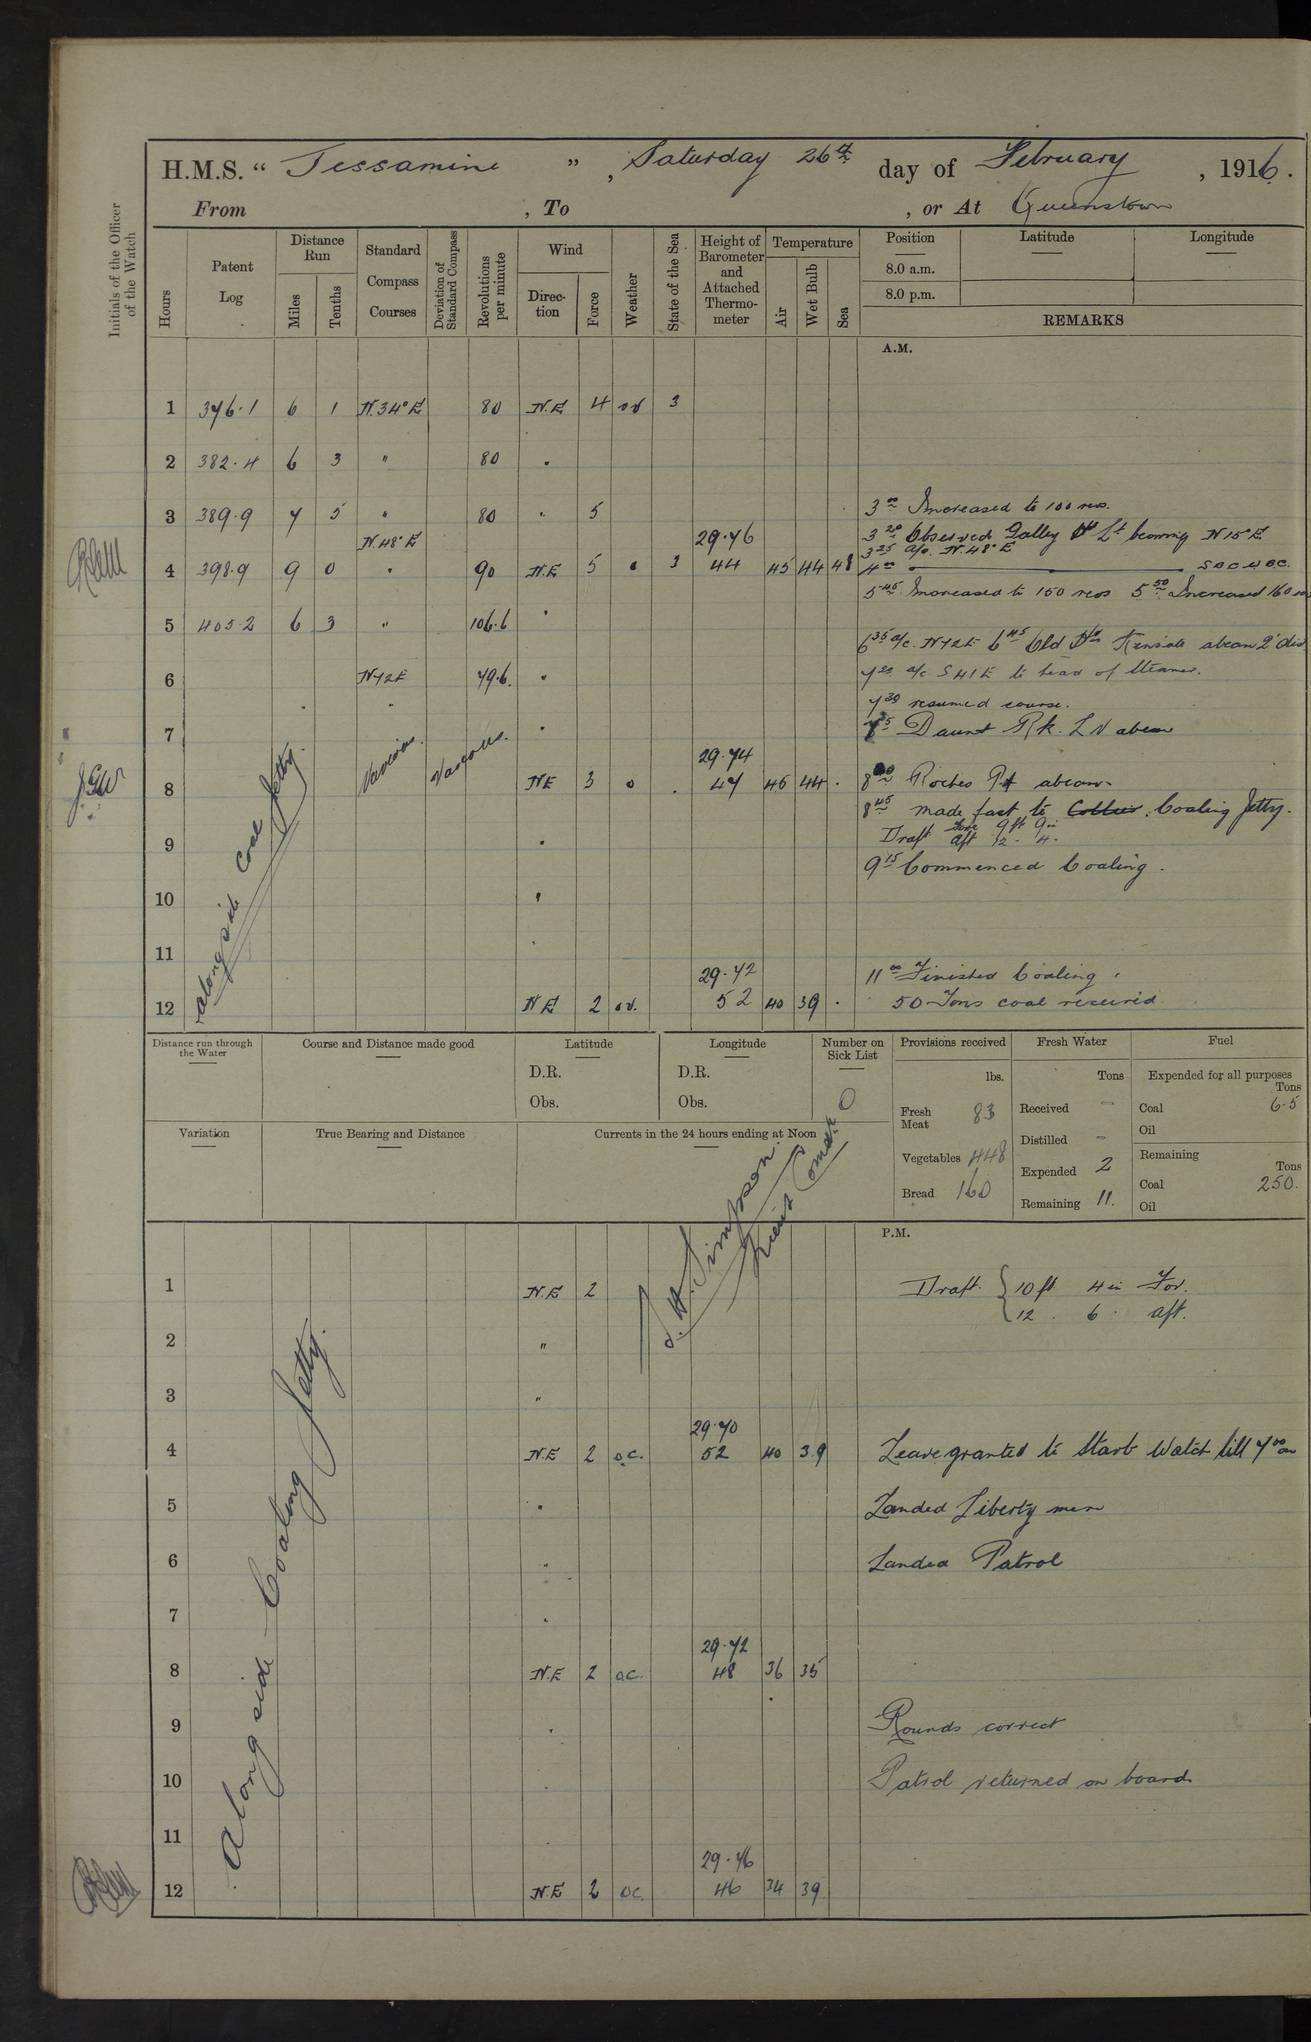 H.M.S. “ Jessamine ”, Saturday 26th day of February, 1916.
From , To , or At Queenstown
Initials of the Officer of the Watch
Hours
Patent Log
Distance Run
Miles
Tenths
Standard Compass Courses
Deviation of Standard Compass
Revolutions per minute
Wind
Direction
Force
Weather
State of the Sea
Height of Barometer and Attached Thermometer
Temperature
Air
Wet Bulb
Sea
Position
Latitude
Longitude
8.0 a.m.
8.0 p.m.
REMARKS
A.M.
1 376.1 6 1 N.34°E 80 N.E 4 3
2 382.4 6 3 " 80 "
3 389.9 7 5 " 80 " 5
3 00 Increased to 100 revs.
N.48°E 29.76
3 20 Observed Galley Hd Lt bearing N15°E
3 25 a/c. N.48°E
4 398.9 9 0 " 90 N.E 5 o 3 44 45 44 48
4 00
5 45 Increased to 150 revs 5 50 Increased 160
5 405.2 6 3 " 106.6 "
6 35 a/c. N72E 6 45 Old Hd Kinsale abeam 2' dist
6 N72E 79.6 "
7 20 a/c S41E to head of Steamer.
7 30 resumed course.
7 "
Daunt Rk. L V abeam
Various Various
29.74
8 NE 3 o 47 46 44
Roches Pt abeam
8 45 made fast to Collier Coaling Jetty.
Draft Fore 9 ft 9 in
9 "
Aft 12 . 4 .
9 15 Commenced Coaling.
10 "
alongside Coal Jetty.
11 "
29.72
11 00 Finished Coaling.
12 NE 2 52 40 39
50 Tons coal received
Distance run through the Water
Course and Distance made good
Latitude
D.R.
Obs.
Longitude
D.R.
Obs.
Number on Sick List
0
Provisions received
lbs.
Fresh Meat 83
Vegetables 448
Bread 160
Fresh Water
Tons
Received –
Distilled –
Expended 2
Remaining 11.
Fuel
Expended for all purposes
Tons
Coal 6.5
Oil
Remaining
Tons
Coal 250.
Oil
Variation
True Bearing and Distance
Currents in the 24 hours ending at Noon
S. H. Simpson.
Lieut Comdr
P.M.
1 N.E 2
Draft { 10 ft 4 in For.
12 . 6 . aft.
2 "
3 "
29.70
4 N.E 2 o.c. 52 40 39 Leave granted to Starb Watch till 7 00 am
5 " Landed Liberty men
6 " Landed Patrol
7 "
29.72
8 N.E 2 o.c. 48 36 35
9 " Rounds correct
10 " Patrol returned on board
11 "
Along side Coaling Jetty.
29.76
12 N.E 2 oc. 46 34 39